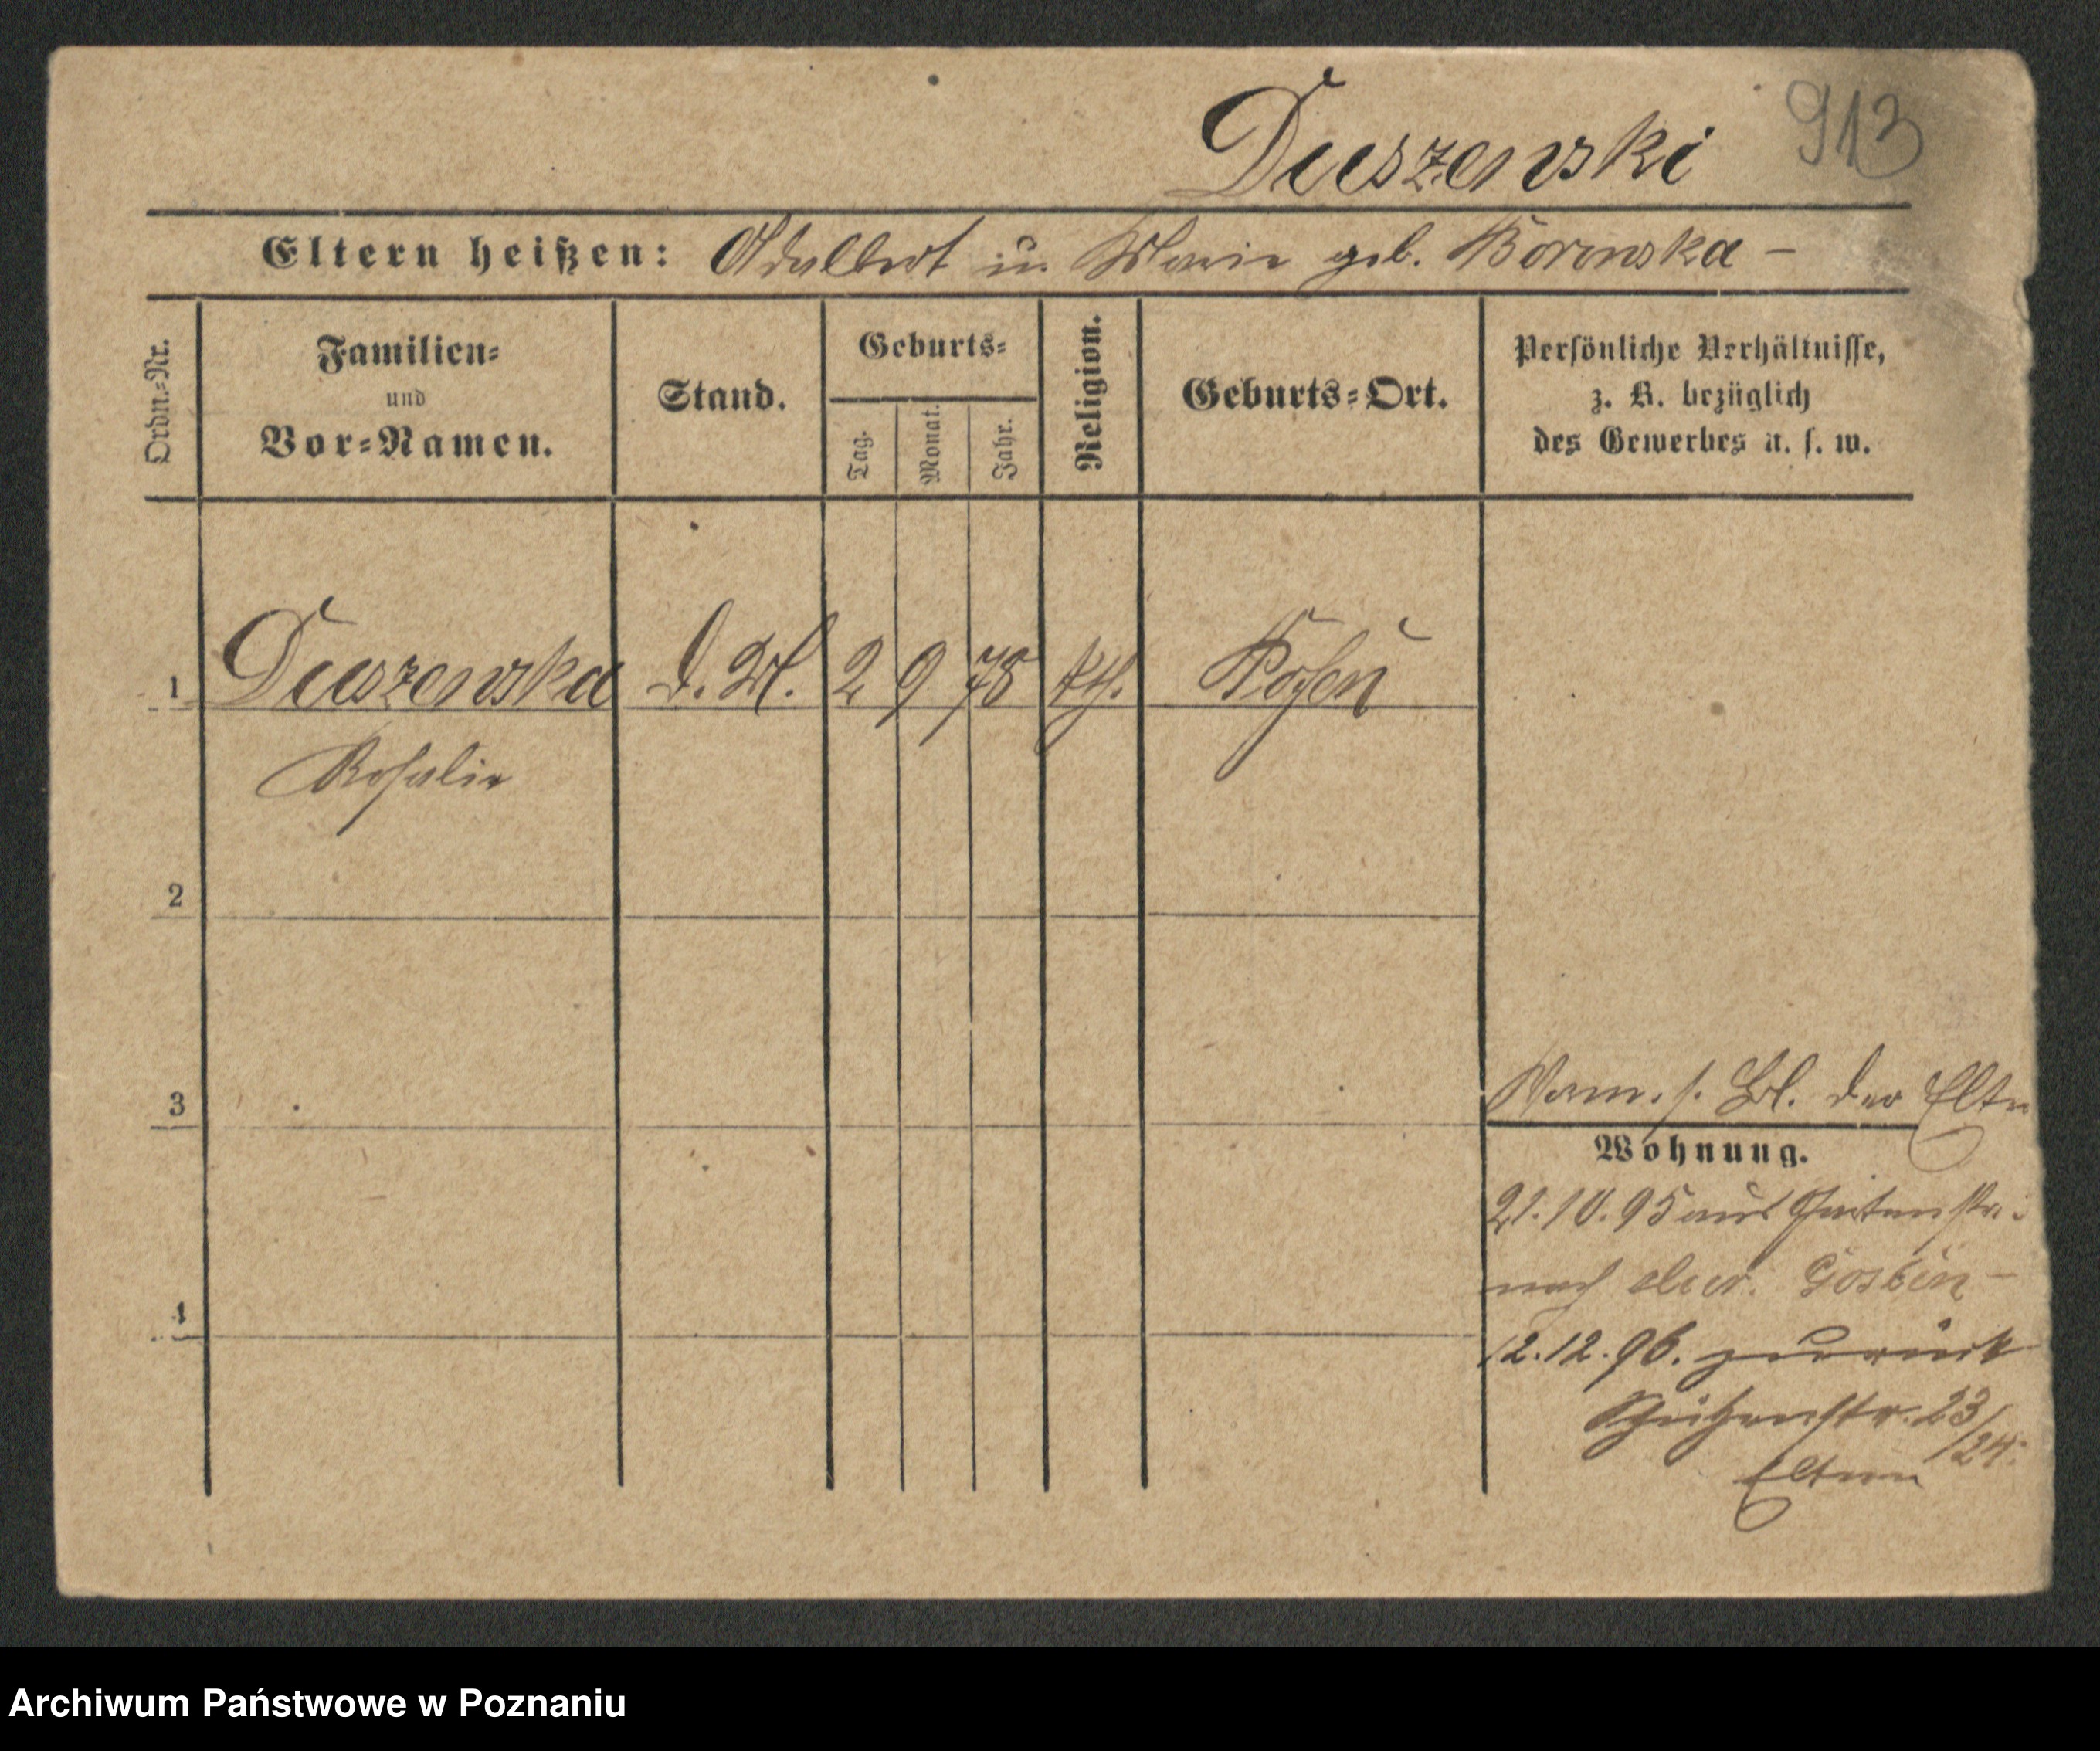 Duszenski 913
Eltern heißen: Adalbert u. Marie geb. Boronska -
Ordn.=Nr.
Familien=
und
Vor=Namen.
Stand.
Geburts=
Tag.
Monat.
Jahr.
Religion.
Geburts=Ort.
Persönliche Verhältnisse,
z. B. bezüglich
des Gewerbes u. s. w.
1 Duszenska D. M. 2 9 78 kth. Posen
Rosalie
2
3
s. Bl. der Eltn
Wohnung.
21.10.95 aus Gartenstr.
nach Gostin -
4
12.12.96. zurück
Schützenstr. 23/24.
Eltern
Archiwum Państwowe w Poznaniu